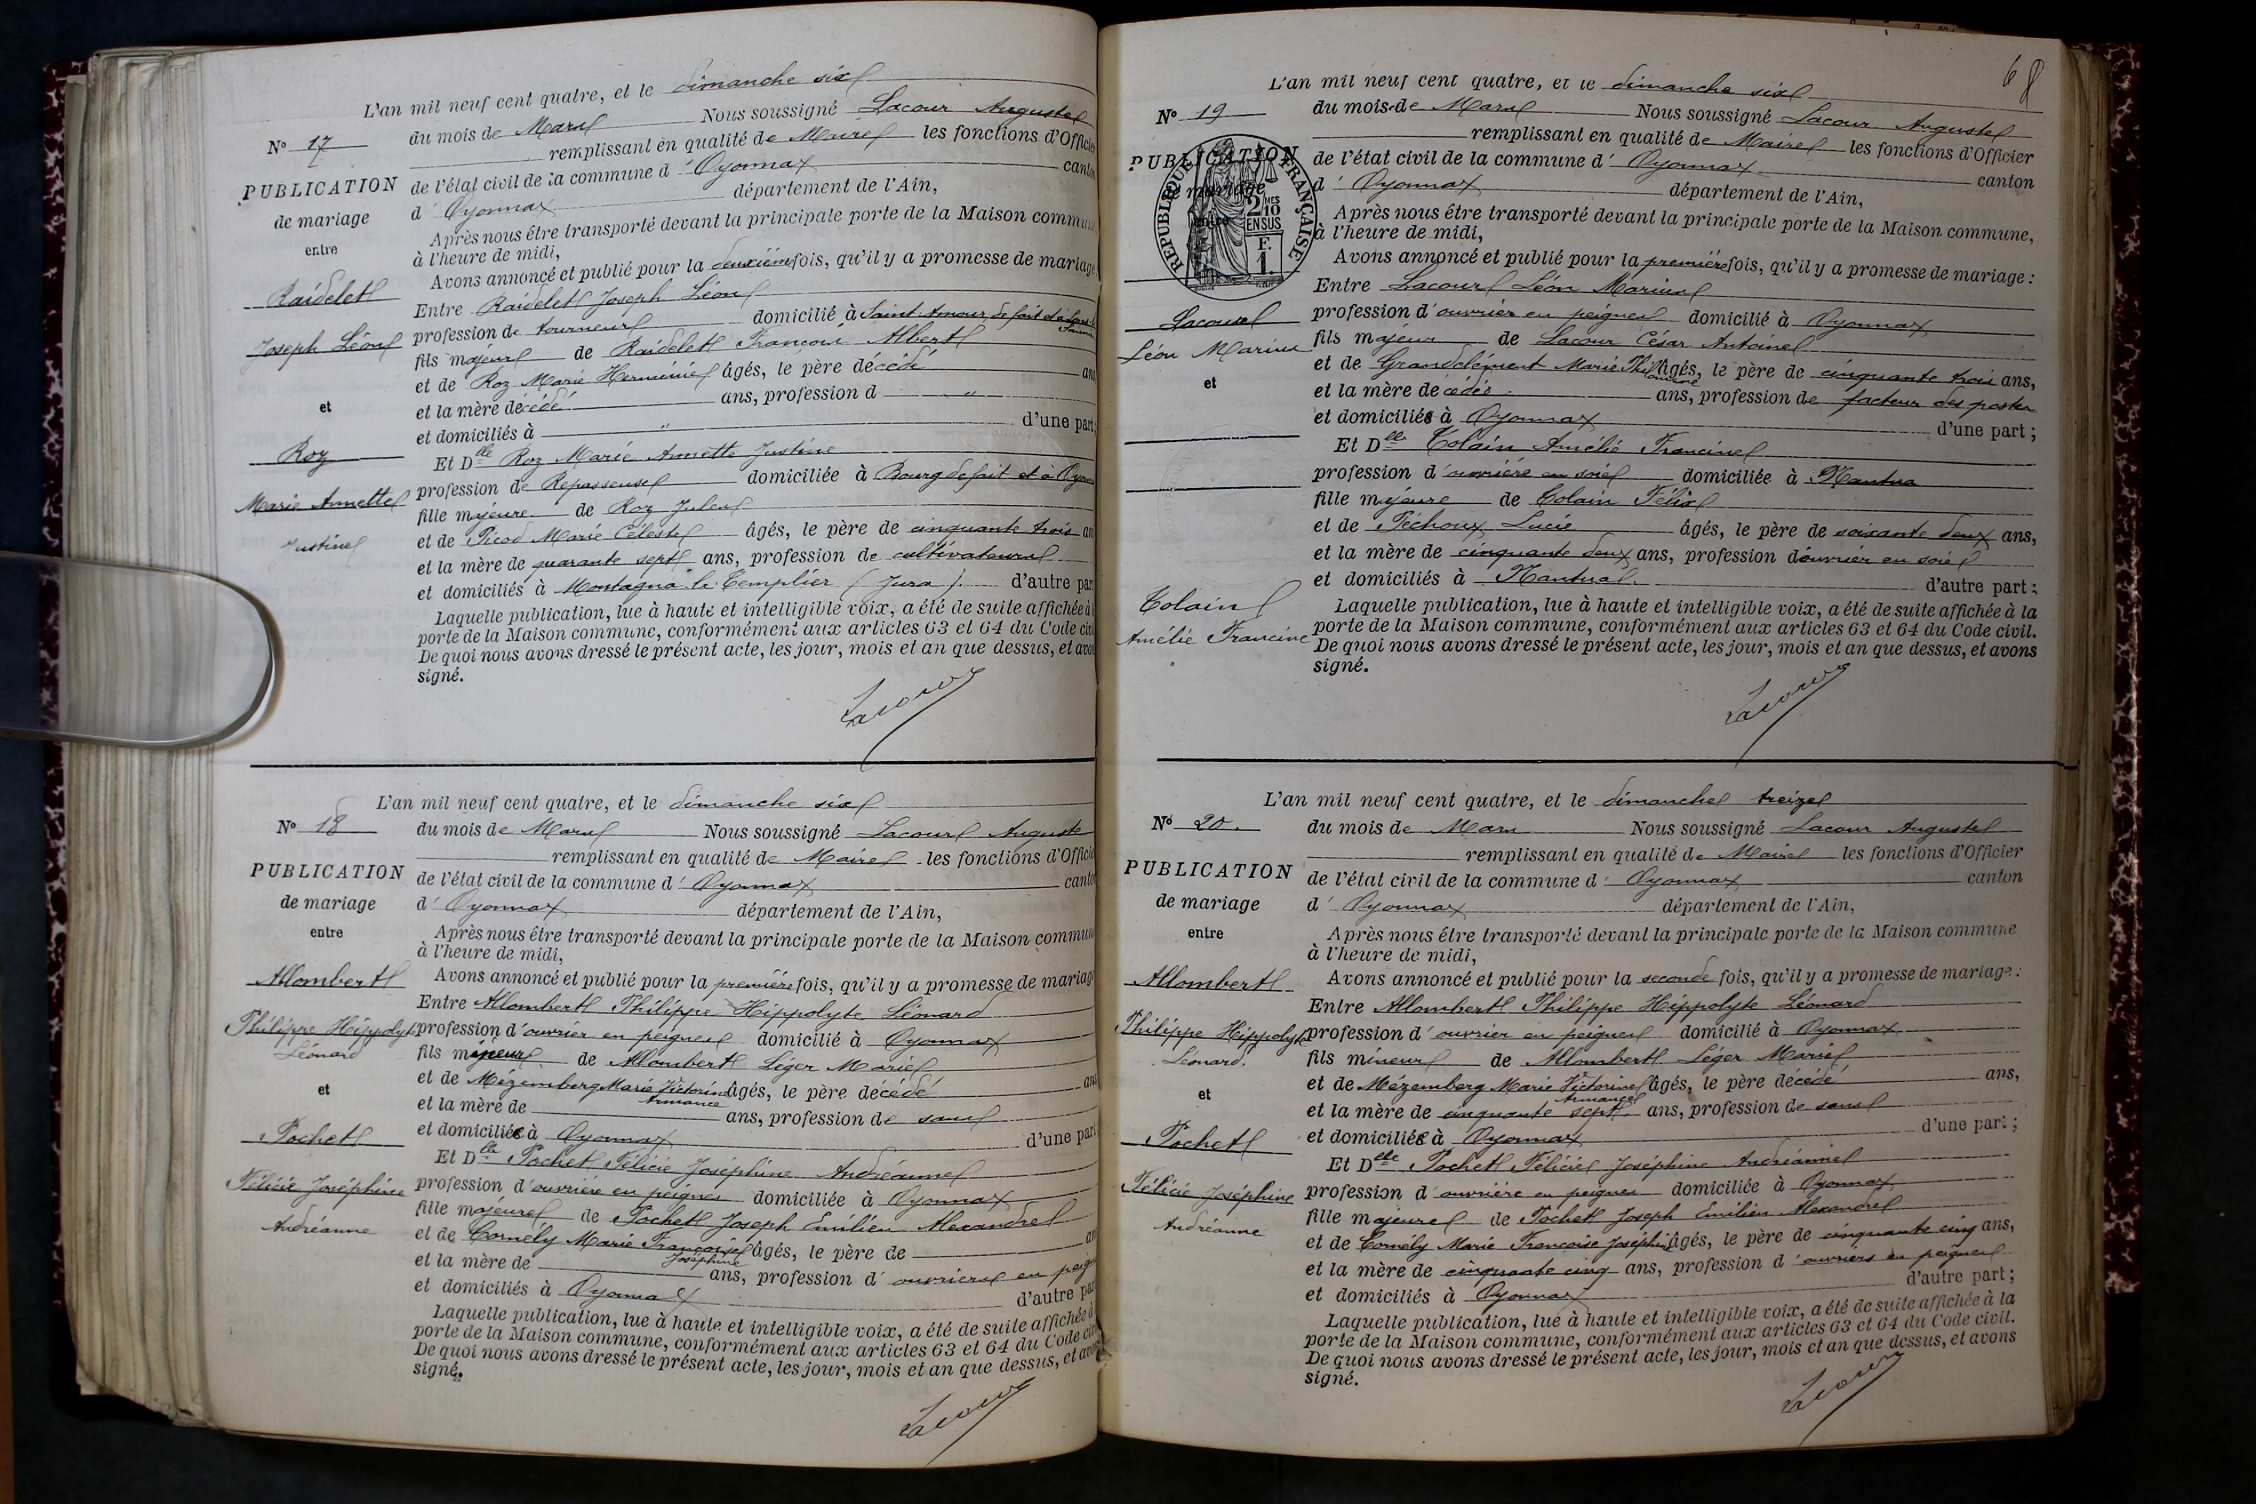 L'an mil neuf cent quatre, et le dimanche six
N° 17 du mois de Mars Nous soussigné Lacour Auguste
remplissant en qualité de Maire les fonctions d'Officier
PUBLICATION de l'état civil de la commune d' Oyonnax canton
de mariage d' Oyonnax département de l'Ain,
entre Après nous être transporté devant la principale porte de la Maison commune
à l'heure de midi,
Avons annoncé et publié pour la deuxième fois, qu'il y a promesse de mariage
Raidelet Entre Raidelet Joseph Léon
Joseph Léon profession de tourneur domicilié à Saint-Amour, de fait et à
fils majeur de Raidelet François Albert
et de Roz Marie Herminie âgés, le père décédé ans
et et la mère décédé ans, profession d "
et domiciliés à " d'une part;
Roz Et Dlle Roz Marie Annette Justine
Marie Annette profession de Repasseuse domiciliée à Bourg de fait et à Oyonnax
fille majeure de Roz Jules
Justine et de Picod Marie Céleste âgés, le père de cinquante trois an
et la mère de quarante sept ans, profession de cultivateurs
et domiciliés à Montagna le Templier (Jura). d'autre par
Laquelle publication, lue à haute et intelligible voix, a été de suite affichée à
porte de la Maison commune, conformément aux articles 63 et 64 du Code civi
De quoi nous avons dressé le présent acte, les jour, mois et an que dessus, et avo
signé.
Lacour
L'an mil neuf cent quatre, et le dimanche six
N° 18 du mois de Mars Nous soussigné Lacour Auguste
remplissant en qualité de Maire les fonctions d'Officie
PUBLICATION de l'état civil de la commune d' Oyonnax canto
de mariage d' Oyonnax département de l'Ain,
entre Après nous être transporté devant la principale porte de la Maison commun
à l'heure de midi,
Allombert Avons annoncé et publié pour la première fois, qu'il y a promesse de mariage
Entre Allombert Philippe Hippolyte Léonard
Philippe Hippolyte profession d' ouvrier en peignes domicilié à Oyonnax
Léonard fils mineur de Allombert Léger Marie
et de Mézemberg Marie Victorine Armance âgés, le père décédé ans
et et la mère de ans, profession de sans
et domiciliée à Oyonnax d'une part
Pochet Et Dlle Pochet Félicie Joséphine Andréanne
Félicie Joséphine profession d' ouvrière en peignes domiciliée à Oyonnax
fille majeure de Pochet Joseph Emilien Alexandre
Andréanne et de Cornély Marie Françoise Joséphine âgés, le père de an
et la mère de ans, profession d' ouvriers en peignes
et domiciliés à Oyonnax d'autre par
Laquelle publication, lue à haute et intelligible voix, a été de suite affichée à
porte de la Maison commune, conformément aux articles 63 et 64 du Code civ
De quoi nous avons dressé le présent acte, les jour, mois et an que dessus, et avo
signé.
Lacour
68
L'an mil neuf cent quatre, et le dimanche six
N° 19 du mois de Mars Nous soussigné Lacour Auguste
remplissant en qualité de Maire les fonctions d'Officier
PUBLICATION de l'état civil de la commune d' Oyonnax canton
de mariage d' Oyonnax département de l'Ain,
entre Après nous être transporté devant la principale porte de la Maison commune,
à l'heure de midi,
RÉPUBLIQUE FRANÇAISE
2 MES 10 EN SUS
F. 1.
Avons annoncé et publié pour la première fois, qu'il y a promesse de mariage :
Entre Lacour Léon Marius
Lacour profession d' ouvrier en peignes domicilié à Oyonnax
Léon Marius fils majeur de Lacour César Antoine
et de Grandclément Marie Philomène âgés, le père de cinquante trois ans,
et et la mère de cédée ans, profession de facteur des postes
et domiciliés à Oyonnax d'une part ;
Et Dlle Colain Amélie Francine
profession d' ouvrière en soie domiciliée à Nantua
fille majeure de Colain Félix
et de Péchoux Lucie âgés, le père de soixante deux ans,
et la mère de cinquante deux ans, profession d'ouvrier en soie
et domiciliés à Nantua. d'autre part ;
Colain Laquelle publication, lue à haute et intelligible voix, a été de suite affichée à la
Amélie Francine porte de la Maison commune, conformément aux articles 63 et 64 du Code civil.
De quoi nous avons dressé le présent acte, les jour, mois et an que dessus, et avons
signé.
Lacour
L'an mil neuf cent quatre, et le dimanche treize
N° 20. du mois de Mars Nous soussigné Lacour Auguste
remplissant en qualité de Maire les fonctions d'Officier
PUBLICATION de l'état civil de la commune d' Oyonnax canton
de mariage d' Oyonnax département de l'Ain,
entre Après nous être transporté devant la principale porte de la Maison commune
à l'heure de midi,
Allombert Avons annoncé et publié pour la seconde fois, qu'il y a promesse de mariage :
Entre Allombert Philippe Hippolyte Léonard
Philippe Hippolyte profession d' ouvrier en peignes domicilié à Oyonnax
Léonard. fils mineur de Allombert Léger Marie
et de Mézemberg Marie Victorine Armance âgés, le père décédé ans,
et et la mère de cinquante sept ans, profession de sans
et domiciliée à Oyonnax d'une part ;
Pochet Et Dlle Pochet Félicie Joséphine Andréanne
Félicie Joséphine profession d' ouvrière en peignes domiciliée à Oyonnax
fille majeure de Pochet Joseph Emilien Alexandre
Andréanne et de Cornély Marie Françoise Joséphine âgés, le père de cinquante cinq ans,
et la mère de cinquante cinq ans, profession d' ouvriers en peignes
et domiciliés à Oyonnax d'autre part ;
Laquelle publication, lue à haute et intelligible voix, a été de suite affichée à la
porte de la Maison commune, conformément aux articles 63 et 64 du Code civil.
De quoi nous avons dressé le présent acte, les jour, mois et an que dessus, et avons
signé.
Lacour